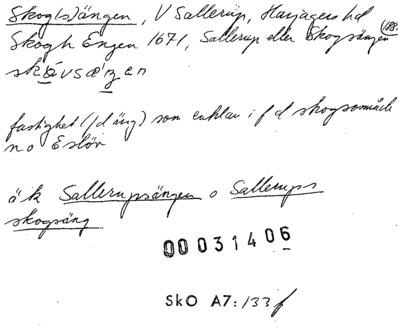 Skog(s)ängen, V Sallerup, Harjagers hd
Skogh Engen 1671, Sallerup eller Skogsängen
skåvsæŋen
fastighet (f d äng) som enklav i f d skogsområde
n o Eslöv
ä k Sallerupsängen o Sallerups
skogsäng
00031406
SkO A7:133 f